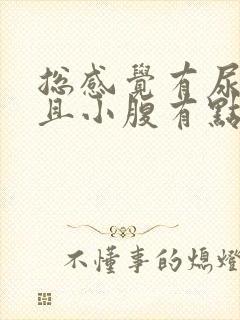 總感覺有尿
且小腹有點
不懂事的熄燈